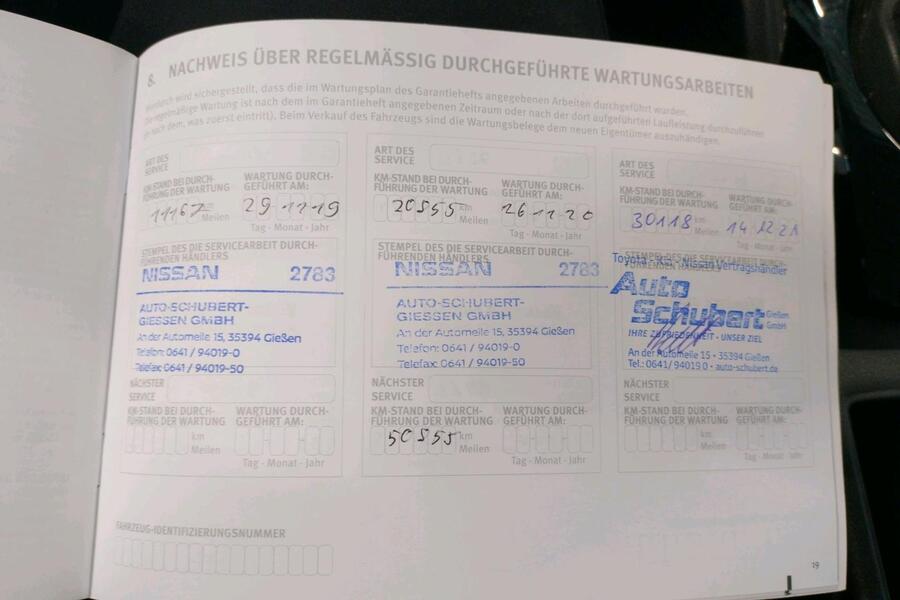 8. NACHWEIS ÜBER REGELMÄSSIG DURCHGEFÜHRTE WARTUNGSARBEITEN
Hierdurch wird sichergestellt, dass die im Wartungsplan des Garantiehefts angegebenen Arbeiten durchgeführt wurden.
Die regelmäßige Wartung ist nach dem im Garantieheft angegebenen Zeitraum oder nach der dort aufgeführten Laufleistung durchzuführen
(je nach dem, was zuerst eintritt). Beim Verkauf des Fahrzeugs sind die Wartungsbelege dem neuen Eigentümer auszuhändigen.
ART DES
SERVICE
KM-STAND BEI DURCH-
FÜHRUNG DER WARTUNG
WARTUNG DURCH-
GEFÜHRT AM:
11167 km
Meilen
29 11 19
Tag - Monat - Jahr
STEMPEL DES DIE SERVICEARBEIT DURCH-
FÜHRENDEN HÄNDLERS
NISSAN 2783
AUTO-SCHUBERT-
GIESSEN GMBH
An der Automeile 15, 35394 Gießen
Telefon: 0641 / 94019-0
Telefax: 0641 / 94019-50
NÄCHSTER
SERVICE
KM-STAND BEI DURCH-
FÜHRUNG DER WARTUNG
WARTUNG DURCH-
GEFÜHRT AM:
km
Meilen
Tag - Monat - Jahr
ART DES
SERVICE
KM-STAND BEI DURCH-
FÜHRUNG DER WARTUNG
WARTUNG DURCH-
GEFÜHRT AM:
20555 km
Meilen
26 11 20
Tag - Monat - Jahr
STEMPEL DES DIE SERVICEARBEIT DURCH-
FÜHRENDEN HÄNDLERS
NISSAN 2783
AUTO-SCHUBERT-
GIESSEN GMBH
An der Automeile 15, 35394 Gießen
Telefon: 0641 / 94019-0
Telefax: 0641 / 94019-50
NÄCHSTER
SERVICE
KM-STAND BEI DURCH-
FÜHRUNG DER WARTUNG
WARTUNG DURCH-
GEFÜHRT AM:
50555 km
Meilen
Tag - Monat - Jahr
ART DES
SERVICE
KM-STAND BEI DURCH-
FÜHRUNG DER WARTUNG
WARTUNG DURCH-
GEFÜHRT AM:
30118 km
Meilen
14 12 21
Tag - Monat - Jahr
STEMPEL DES DIE SERVICEARBEIT DURCH-
FÜHRENDEN HÄNDLERS
Toyota - Nissan Vertragshändler
Auto
Schubert Gießen GmbH
IHRE ZUFRIEDENHEIT - UNSER ZIEL
An der Automeile 15 • 35394 Gießen
Tel.: 0641/94019 0 • auto-schubert.de
NÄCHSTER
SERVICE
KM-STAND BEI DURCH-
FÜHRUNG DER WARTUNG
WARTUNG DURCH-
GEFÜHRT AM:
km
Meilen
Tag - Monat - Jahr
FAHRZEUG-IDENTIFIZIERUNGSNUMMER
19